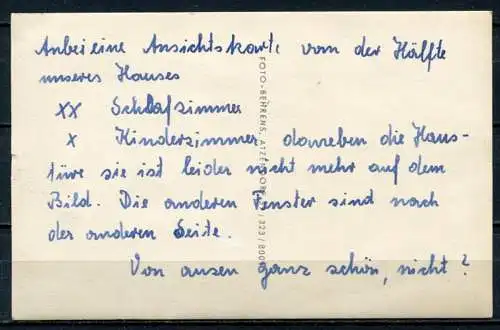 Anbei eine Ansichtskarte von der Hälfte
unseres Hauses
xx Schlafzimmer
x Kinderzimmer daneben die Haus-
türe sie ist leider nicht mehr auf dem
Bild. Die anderen Fenster sind nach
der anderen Seite.
Von ausen ganz schön, nicht?
FOTO-BEHRENS, / 323 / 800